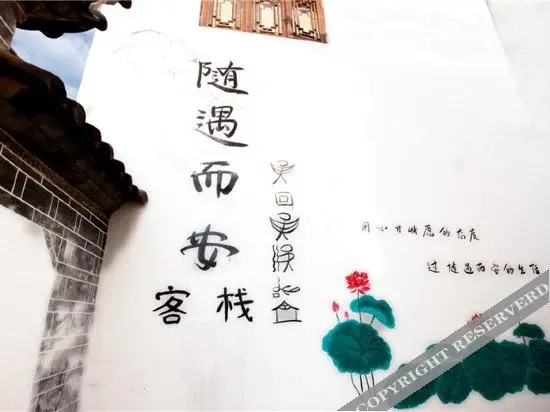 随遇而安
客栈
用心甘情愿的态度
过随遇而安的生活
COPYRIGHT RESERVERD